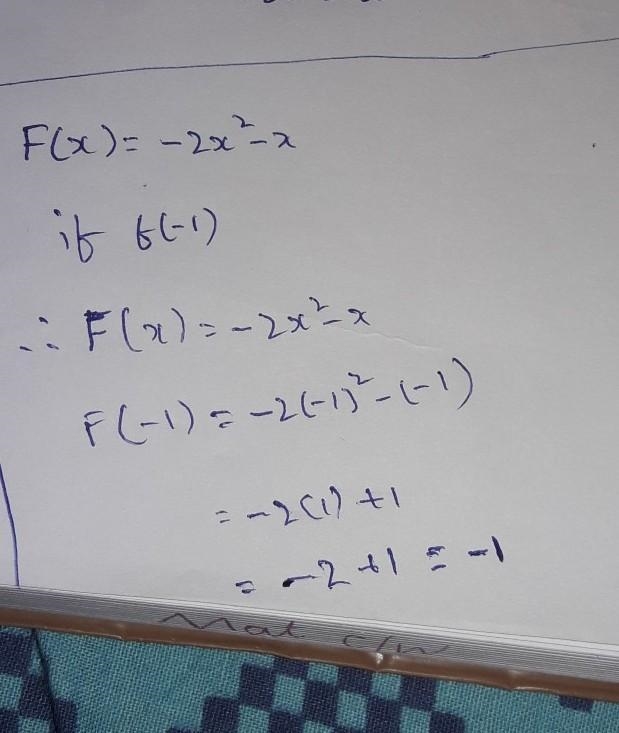 F(x) = -2x² - x
if f(-1)
∴ F(x) = -2x² - x
F(-1) = -2(-1)² - (-1)
= -2(1) + 1
= -2 + 1 = -1
Mat c/w